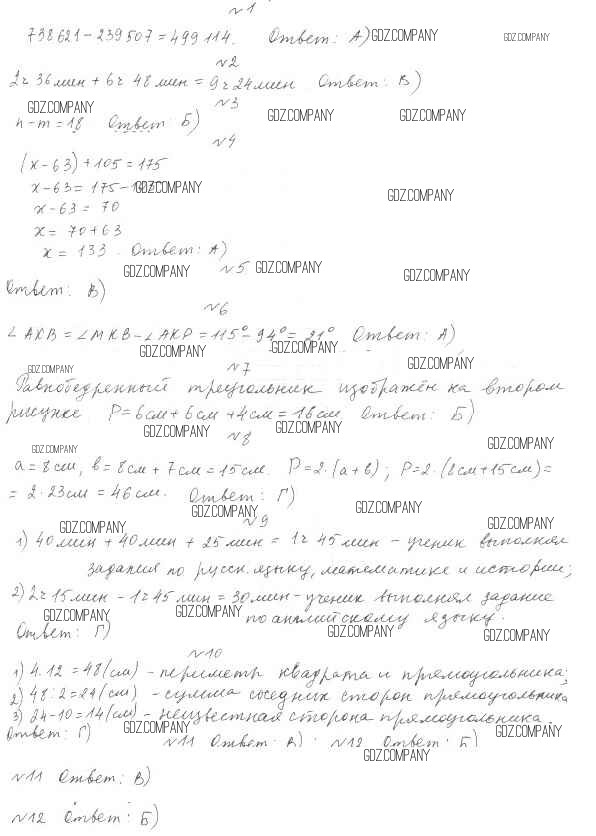 №1
738621 - 239507 = 499114. Ответ: А) GDZ.COMPANY GDZ.COMPANY
№2
2ч 36 мин + 6ч 48 мин = 9ч 24 мин Ответ: В)
GDZ.COMPANY №3 GDZ.COMPANY GDZ.COMPANY
n - m = 18 Ответ: Б)
№4
(x - 63) + 105 = 175
x - 63 = 175 - GDZ.COMPANY GDZ.COMPANY
x - 63 = 70
x = 70 + 63
x = 133. Ответ: А)
GDZ.COMPANY №5 GDZ.COMPANY GDZ.COMPANY
Ответ: В)
№6
∠AKB = ∠MKB - ∠AKP = 115° - 94° = 21° Ответ: А)
GDZ.COMPANY GDZ.COMPANY
GDZ.COMPANY №7 GDZ.COMPANY
Равнобедренный треугольник изображён на втором
рисунке. P = 6 см + 6 см + 4 см = 16 см Ответ: Б)
GDZ.COMPANY №8 GDZ.COMPANY GDZ.COMPANY
GDZ.COMPANY
a = 8 см, b = 8 см + 7 см = 15 см. P = 2·(a + b); P = 2·(8 см + 15 см) =
= 2·23 см = 46 см. Ответ: Г)
GDZ.COMPANY GDZ.COMPANY
GDZ.COMPANY №9 GDZ.COMPANY
1) 40 мин + 40 мин + 25 мин = 1ч 45 мин - ученик выполнял
задания по русск. языку, математике и истории;
2) 2ч 15 мин - 1ч 45 мин = 30 мин - ученик выполнял задание
GDZ.COMPANY GDZ.COMPANY по английскому языку.
Ответ: Г) GDZ.COMPANY GDZ.COMPANY
№10
1) 4·12 = 48 (см) - периметр квадрата и прямоугольника;
2) 48:2 = 24 (см) - сумма соседних сторон прямоугольника
3) 24 - 10 = 14 (см) - неизвестная сторона прямоугольника
Ответ: Г) GDZ.COMPANY GDZ.COMPANY
№11 Ответ: В). №12 Ответ: Б)
GDZ.COMPANY
№11 Ответ: В)
№12 Ответ: Б)